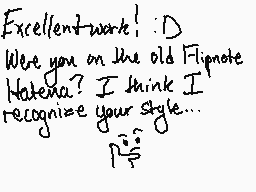 Excellent work! :D
Were you on the old Flipnote
Hatena? I think I
recognize your style...